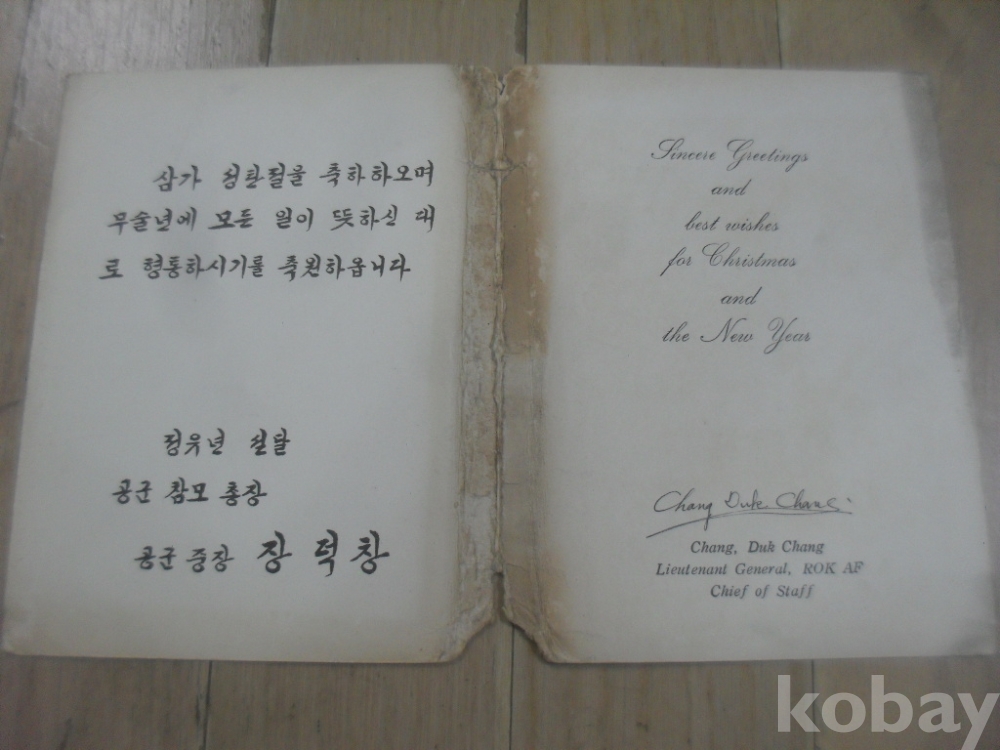 삼가 성탄절을 축하하오며
무술년에 모든 일이 뜻하신 대
로 형통하시기를 축원하옵니다
정유년 섣달
공군 참모 총장
공군 중장 장덕창
Sincere Greetings
and
best wishes
for Christmas
and
the New Year
Chang Duk Chang
Chang, Duk Chang
Lieutenant General, ROK AF
Chief of Staff
kobay